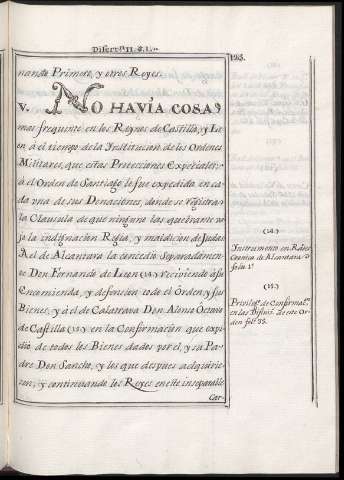 Disert.ⁿ II. §. I.ᵒ
125.
nando Primero, y otros Reyes.
V. NO HAVIA COSA,
mas frequente en los Reynos de Castilla, y Le
on á el tiempo de la Institucion de los Ordenes
Militares, que estas Protecciones Especiales:
á el Orden de Santiago le fue expedida en ca
da una de sus Donaciones, donde se registra
la Clausula de que ninguno las quebrante va
jo la indignacion Regia, y maldicion de Judas
A el de Alcantara la concedio Separadamen
te Don Fernando de Leon (14) reciviendo á su
Encomienda, y defension todo el Orden, y sus
Bienes, y á el de Calatrava Don Alonso Octavo
de Castilla (15) en la Confirmacion que expi
dio de todos los Bienes dados por el, y su Pa
dre Don Sancho, y los que despues adquirie
sen, y continuando los Reyes en este inseparable
Car-
(14.)
Instrumento en Rades
Cronica de Alcantara
folio 1º
(15.)
Privileg.º de Confirmac.ⁿ
en las Difini. de este Or
den fol. 35.